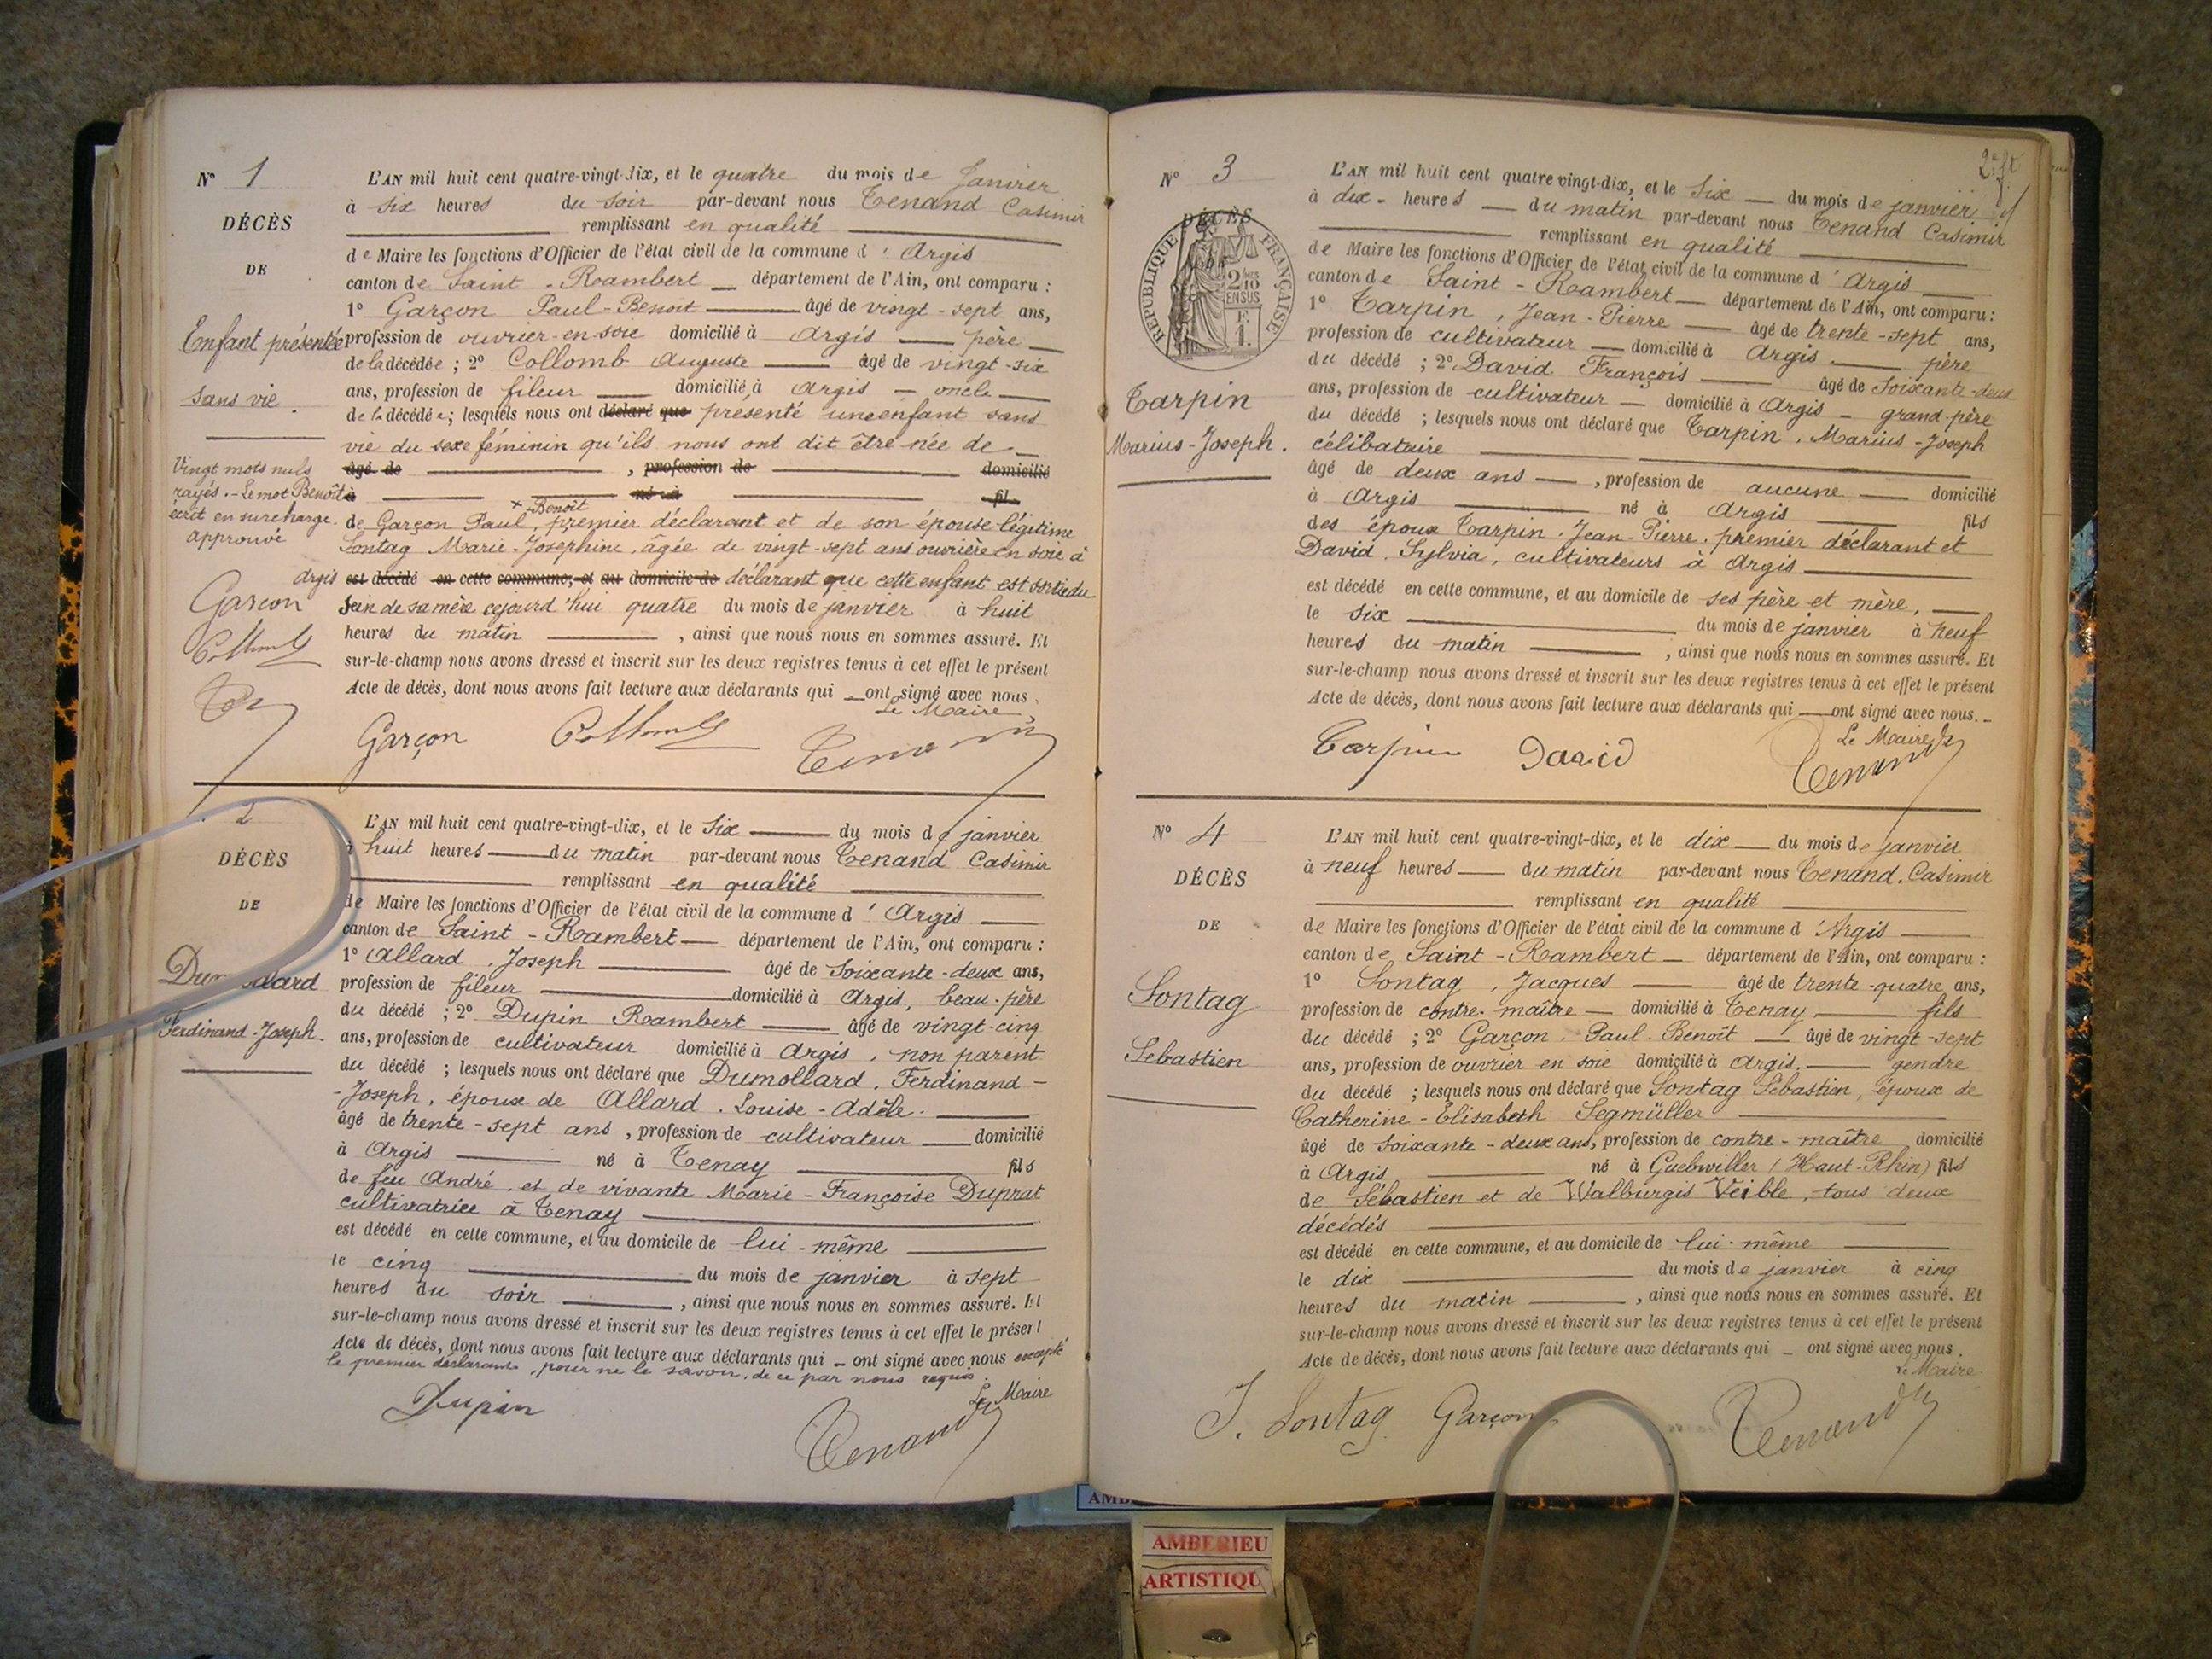 N° 1
DÉCÈS
DE
Enfant présentée
sans vie.
Vingt mots nuls
rayés. - Le mot Benoît
écrit en surcharge.
approuvé
Garçon
Collomb
L'AN mil huit cent quatre-vingt-dix, et le quatre du mois de Janvier
à six heures du soir par-devant nous Tenand Casimir
remplissant en qualité
de Maire les fonctions d'Officier de l'état civil de la commune d'Argis
canton de Saint-Rambert département de l'Ain, ont comparu :
1° Garçon Paul-Benoit âgé de vingt-sept ans,
profession de ouvrier-en-soie domicilié à Argis père
de la décédée ; 2° Collomb Auguste âgé de vingt-six
ans, profession de fileur domicilié à Argis - oncle
de la décédée ; lesquels nous ont déclaré que présenté une enfant sans
vie du sexe féminin qu'ils nous ont dit être née de
âgé de , profession de domicilié
à né à fil
× Benoît
de Garçon Paul, premier déclarant et de son épouse légitime
Sontag Marie-Josephine, âgée de vingt-sept ans ouvrière en soie à
Argis est décédé en cette commune, et au domicile de déclarant que cette enfant est sortie du
sein de sa mère cejourd'hui quatre du mois de janvier à huit
heures du matin , ainsi que nous nous en sommes assuré. Et
sur-le-champ nous avons dressé et inscrit sur les deux registres tenus à cet effet le présent
Acte de décès, dont nous avons fait lecture aux déclarants qui ont signé avec nous.
Le Maire
Garçon Collomb Tenand
2
DÉCÈS
DE
Dumollard
Ferdinand-Joseph.
L'AN mil huit cent quatre-vingt-dix, et le six du mois de janvier
à huit heures du matin par-devant nous Tenand Casimir
remplissant en qualité
de Maire les fonctions d'Officier de l'état civil de la commune d'Argis
canton de Saint-Rambert département de l'Ain, ont comparu :
1° Allard, Joseph âgé de soixante-deux ans,
profession de fileur domicilié à Argis, beau-père
du décédé ; 2° Dupin Rambert âgé de vingt-cinq
ans, profession de cultivateur domicilié à Argis, non parent
du décédé ; lesquels nous ont déclaré que Dumollard, Ferdinand-
-Joseph, époux de Allard, Louise-Adèle.
âgé de trente-sept ans, profession de cultivateur domicilié
à Argis né à Tenay fils
de feu André et de vivante Marie-Françoise Duprat
cultivatrice à Tenay
est décédé en cette commune, et au domicile de lui-même
le cinq du mois de janvier à sept
heures du soir , ainsi que nous nous en sommes assuré. Et
sur-le-champ nous avons dressé et inscrit sur les deux registres tenus à cet effet le présent
Acte de décès, dont nous avons fait lecture aux déclarants qui - ont signé avec nous excepté
le premier déclarant, pour ne le savoir, de ce par nous requis.
Le Maire
Dupin Tenand
N° 3
RÉPUBLIQUE FRANÇAISE
2/10 EN SUS
F. 1.
DÉCÈS
DE
Tarpin
Marius-Joseph.
L'AN mil huit cent quatre vingt-dix, et le six du mois de janvier
à dix heures du matin par-devant nous Tenand Casimir
remplissant en qualité
de Maire les fonctions d'Officier de l'état civil de la commune d'Argis
canton de Saint-Rambert département de l'Ain, ont comparu :
1° Tarpin, Jean-Pierre âgé de trente-sept ans,
profession de cultivateur domicilié à Argis père
du décédé ; 2° David François âgé de soixante-deux
ans, profession de cultivateur domicilié à Argis - grand-père
du décédé ; lesquels nous ont déclaré que Tarpin, Marius-Joseph
célibataire
âgé de deux ans, profession de aucune domicilié
à Argis né à Argis fils
des époux Tarpin, Jean-Pierre, premier déclarant et
David, Sylvia, cultivateurs à Argis
est décédé en cette commune, et au domicile de ses père et mère,
le six du mois de janvier à neuf
heures du matin , ainsi que nous nous en sommes assuré. Et
sur-le-champ nous avons dressé et inscrit sur les deux registres tenus à cet effet le présent
Acte de décès, dont nous avons fait lecture aux déclarants qui ont signé avec nous.
Le Maire
Tarpin David Tenand
N° 4
DÉCÈS
DE
Sontag
Sebastien
L'AN mil huit cent quatre-vingt-dix, et le dix du mois de janvier
à neuf heures du matin par-devant nous Tenand, Casimir
remplissant en qualité
de Maire les fonctions d'Officier de l'état civil de la commune d'Argis
canton de Saint-Rambert département de l'Ain, ont comparu :
1° Sontag, Jacques âgé de trente-quatre ans,
profession de contre-maître domicilié à Tenay fils
du décédé ; 2° Garçon Paul-Benoît âgé de vingt-sept
ans, profession de ouvrier en soie domicilié à Argis. gendre
du décédé ; lesquels nous ont déclaré que Sontag Sébastien, époux de
Catherine-Elisabeth Segmüller
âgé de soixante-deux ans, profession de contre-maître domicilié
à Argis né à Guebwiller (Haut-Rhin) fils
de Sébastien et de Walburgis Veible, tous deux
décédés
est décédé en cette commune, et au domicile de lui-même
le dix du mois de janvier à cinq
heures du matin , ainsi que nous nous en sommes assuré. Et
sur-le-champ nous avons dressé et inscrit sur les deux registres tenus à cet effet le présent
Acte de décès, dont nous avons fait lecture aux déclarants qui - ont signé avec nous.
Le Maire
J. Sontag Garçon Tenand
AMBERIEU
ARTISTIQU